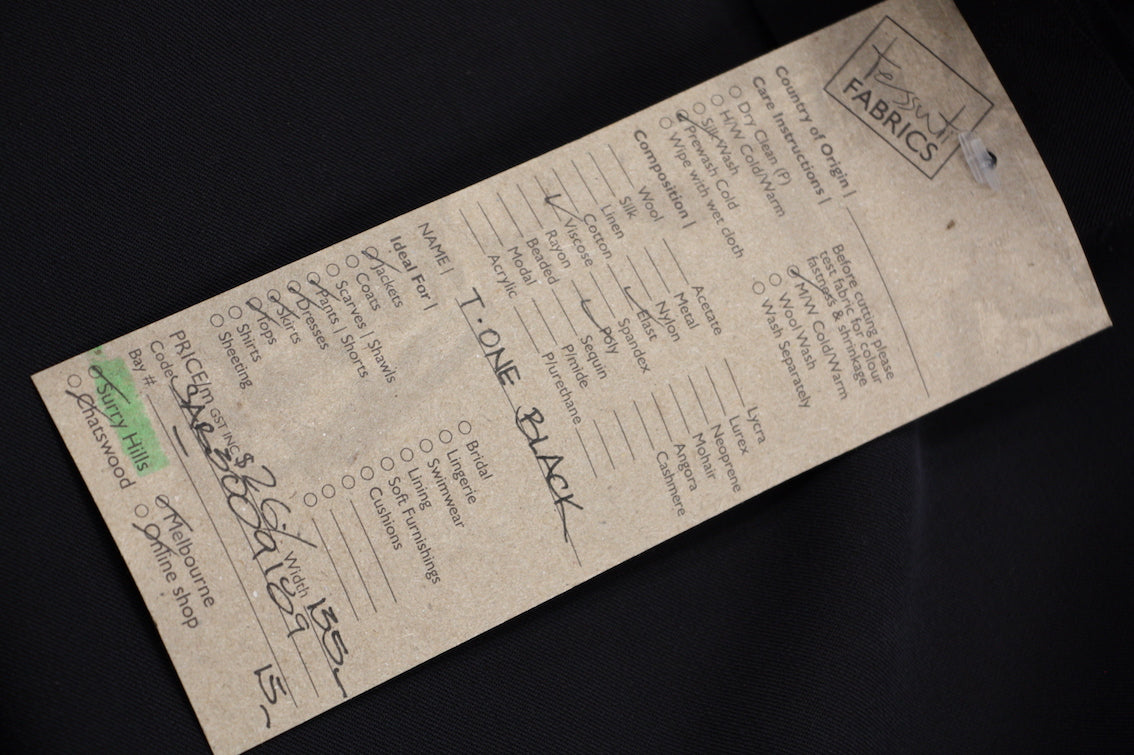 tessuti
FABRICS
Country of Origin |
Care Instructions |
Dry Clean (P)
H/W Cold/Warm
Silk Wash
Prewash Cold
Wipe with wet cloth
Before cutting please
test fabric for colour
fastness & shrinkage
M/W Cold/Warm
Wool Wash
Wash Separately
Composition |
Wool
Silk
Linen
Cotton
Viscose
Rayon
Beaded
Modal
Acrylic
Acetate
Metal
Nylon
Elast
Spandex
Poly
Sequin
P/mide
P/urethane
Lycra
Lurex
Neoprene
Mohair
Angora
Cashmere
NAME | T.ONE BLACK
Ideal For |
Jackets
Coats
Scarves | Shawls
Pants | Shorts
Dresses
Skirts
Tops
Shirts
Sheeting
Bridal
Lingerie
Swimwear
Lining
Soft Furnishings
Cushions
PRICE/m GST INC $ Width 135
Code
Bay # 15
Surry Hills
Melbourne
Chatswood
Online shop